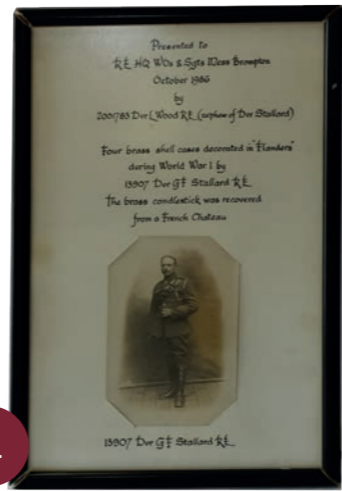 Presented to
RE HQ WOs & Sgts Mess Brompton
October 1986
by
2001783 Dvr L Wood RE (nephew of Dvr Stallard)
Four brass shell cases decorated in "Flanders"
during World War 1 by
13907 Dvr GF Stallard RE
The brass candlestick was recovered
from a French Chateau
13907 Dvr GF Stallard RE